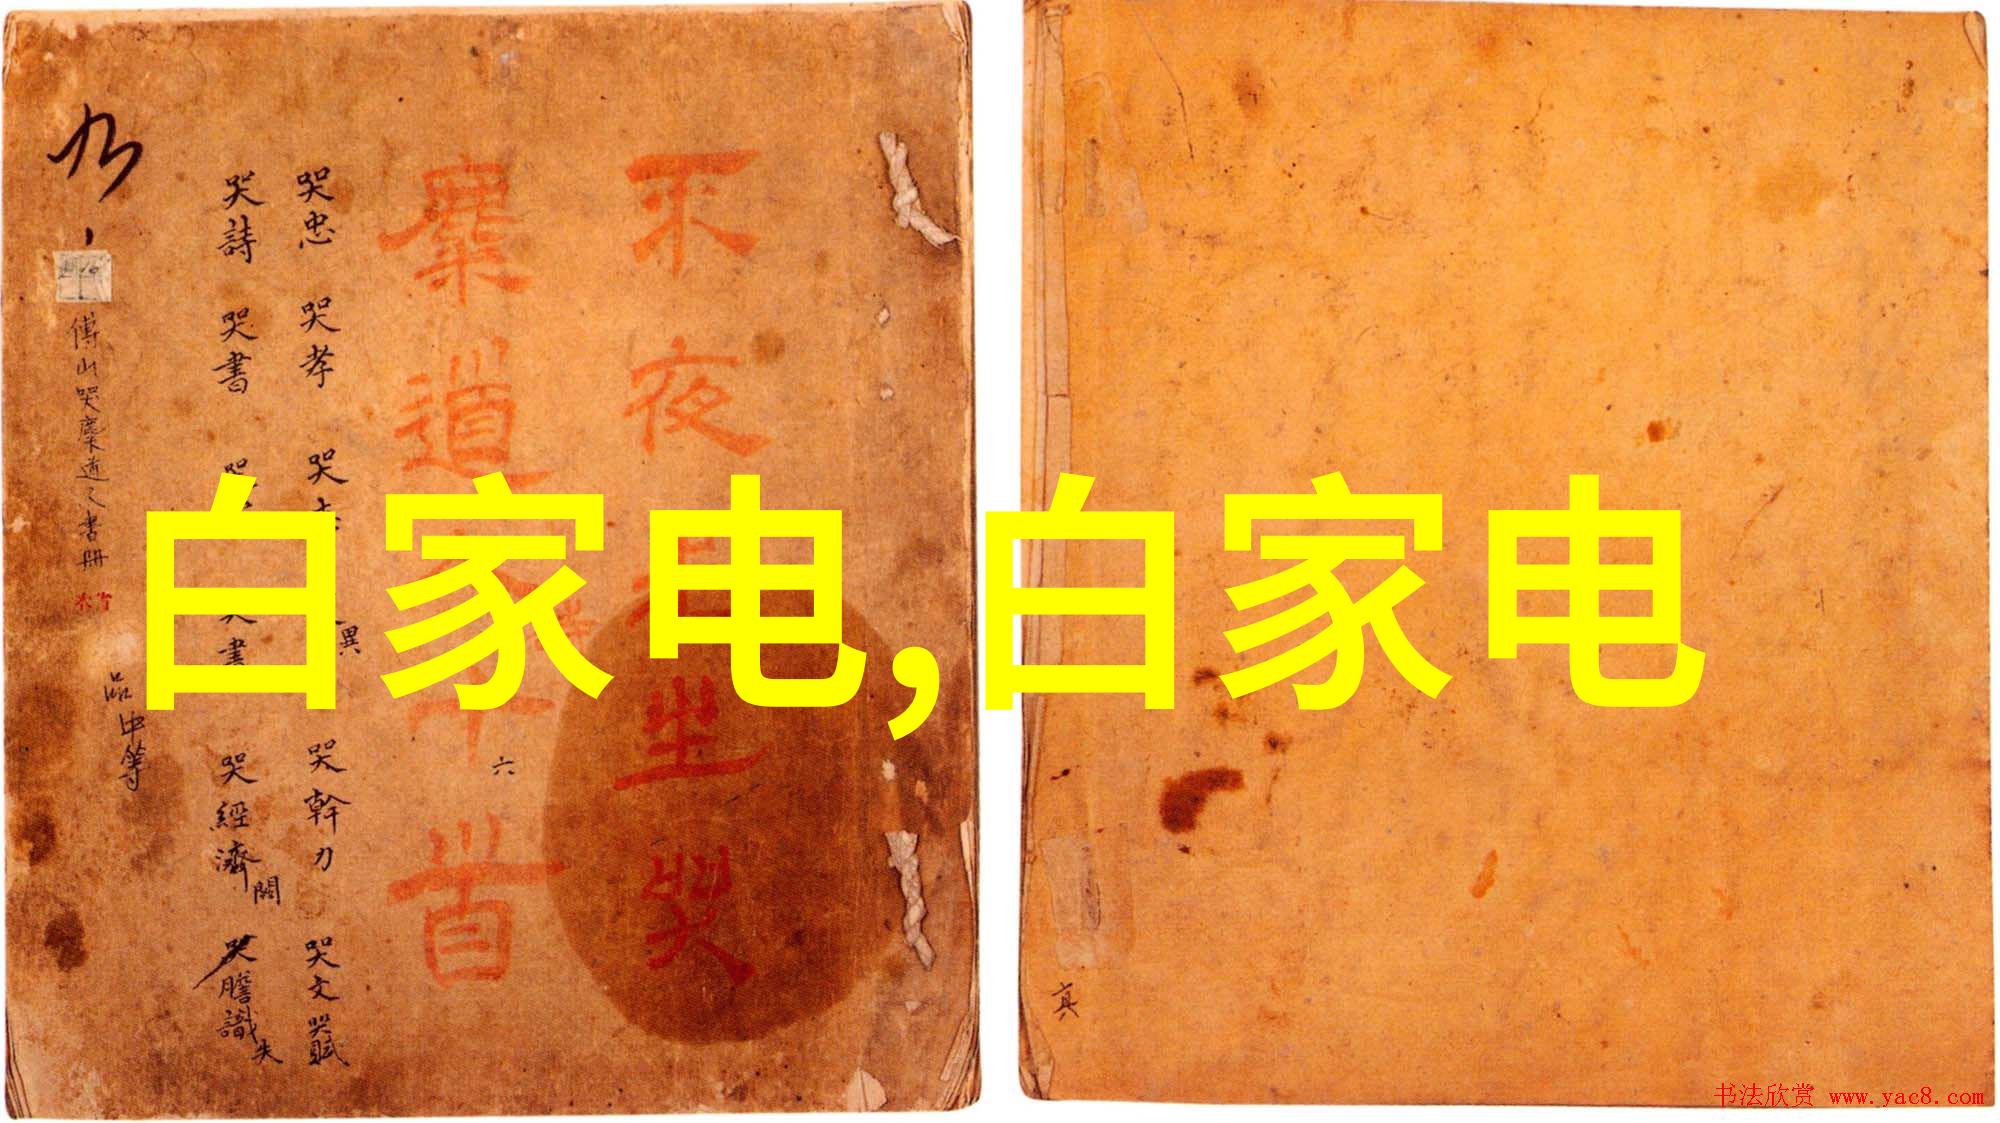 白家电,白家电
不夜
坐哭
麋道
十首
六
哭忠 哭孝 哭
異
哭幹力 哭文 哭賦
哭詩 哭書
哭經濟
閣
哭膽識
失
九
傅山哭麋道之書册
品中等
真
书法欣赏 www.yac8.com